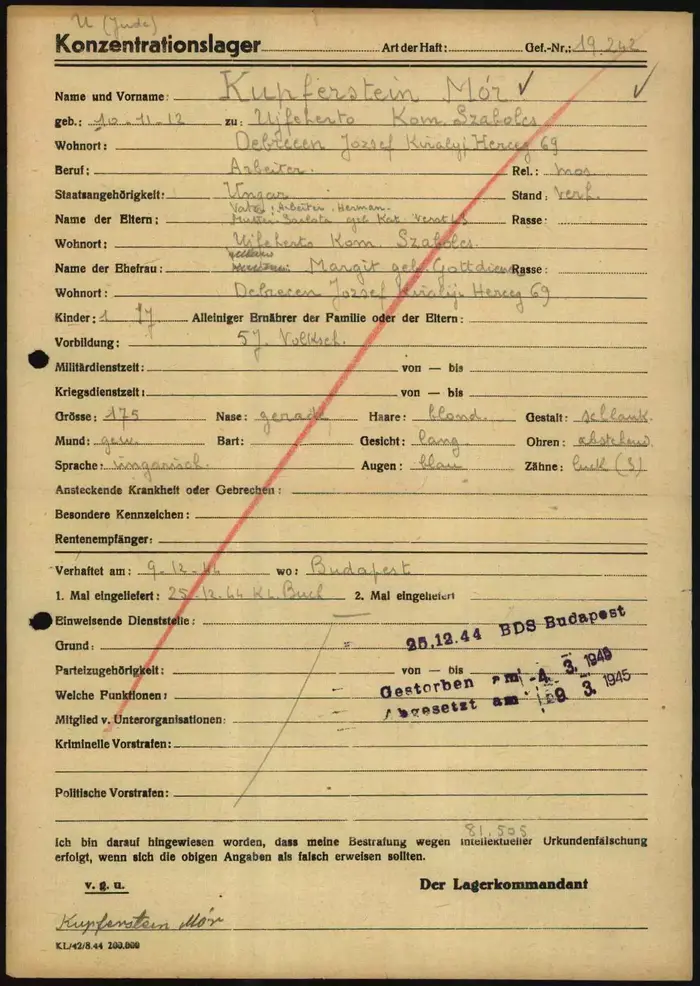 U (Jude)
Konzentrationslager Art der Haft: Gef.-Nr.: 19.242
Name und Vorname: Kupferstein Mór
geb.: 10-11-12 zu: Ujfeherto Kom. Szabolcs
Wohnort: Debrecen Jozsef Kiralyi Herceg 69
Beruf: Arbeiter. Rel.: mos.
Staatsangehörigkeit: Ungar Stand: verh.
Vater: Arbeiter Herman.
Name der Eltern: Mutter: Sarlota geb Kat. Rasse:
Wohnort: Ujfeherto Kom. Szabolcs.
Name der Ehefrau: Margit geb. Gottdiener Rasse:
Wohnort: Debrecen Jozsef Kiralyi Herceg 69
Kinder: 1 Alleiniger Ernährer der Familie oder der Eltern:
Vorbildung: 5 J. Volksch.
Militärdienstzeit: von — bis
Kriegsdienstzeit: von — bis
Grösse: 175 Nase: gerade Haare: blond. Gestalt: schlank.
Mund: gew. Bart: Gesicht: lang Ohren: abstehend
Sprache: ungarisch. Augen: blau Zähne: luck (3)
Ansteckende Krankheit oder Gebrechen:
Besondere Kennzeichen:
Rentenempfänger:
Verhaftet am: 9-12-44 wo: Budapest
1. Mal eingeliefert: 25-12-44 KL. Buch 2. Mal eingeliefert
Einweisende Dienststelle:
25.12.44 BDS Budapest
Grund:
Parteizugehörigkeit: von — bis
Gestorben am -4. 3. 1945
Welche Funktionen:
Abgesetzt am 9 3. 1945
Mitglied v. Unterorganisationen:
Kriminelle Vorstrafen:
Politische Vorstrafen:
81.505
Ich bin darauf hingewiesen worden, dass meine Bestrafung wegen intellektueller Urkundenfälschung
erfolgt, wenn sich die obigen Angaben als falsch erweisen sollten.
v. g. u. Der Lagerkommandant
Kupferstein Mór
KL/42/8.44 200.000